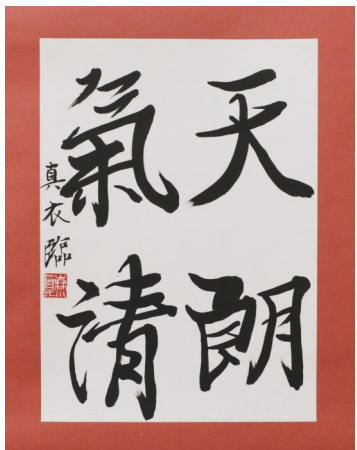 天朗
氣清
真衣臨